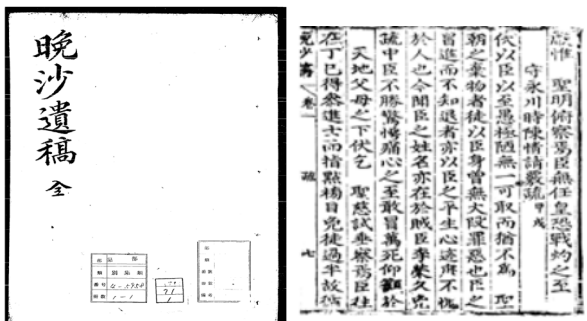 晚沙遺稿 全
集部
別集類
4-5958
1-1
71
1
啟惟 聖明俯察焉臣無任皇恐戰灼之至
守永川時陳情請竄疏 甲戌
伏以臣以至愚極陋無一可取而猶不爲 聖
朝之棄物者徒以臣身曾無大段罪惡也臣之
冒進而不知退者亦以臣之平生心迹庶不愧
於人也今聞臣之姓名亦在於賊臣李榮久兇
疏中臣不勝驚愕痛心之至敢冒萬死仰籲於
天地父母之下伏乞 聖慈試垂察焉臣往
在丁巳得參進士而指點楊目兇徒過半故
晚沙稿 卷一 疏 七